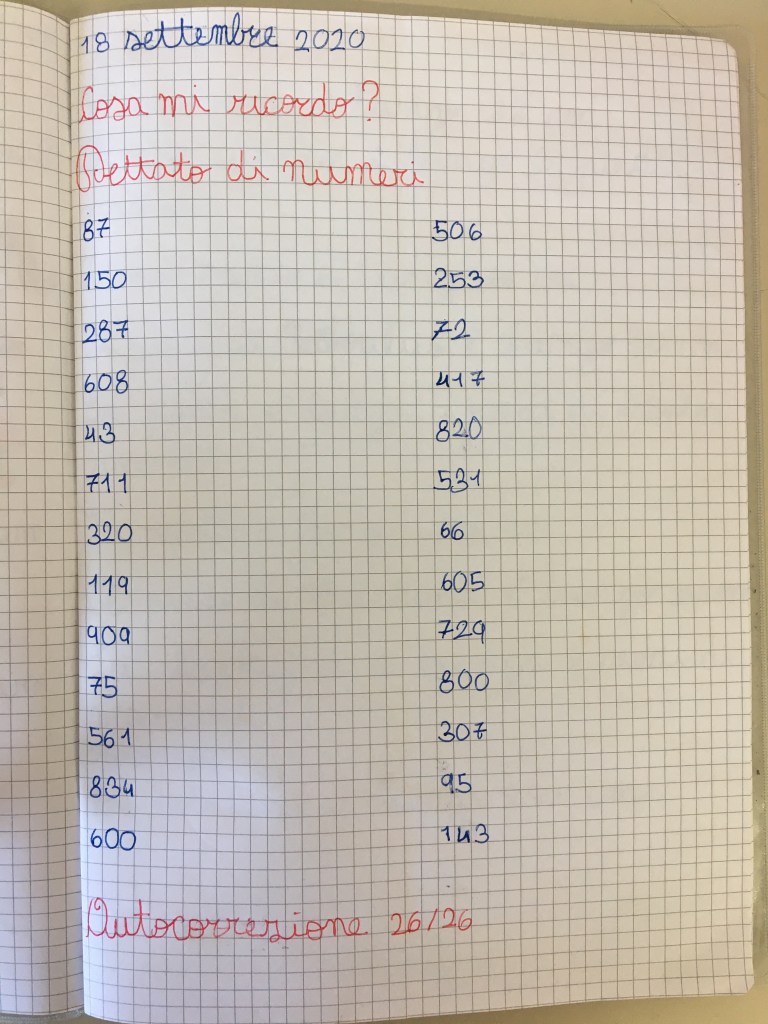 18 settembre 2020
Cosa mi ricordo?
Dettato di numeri
87 506
150 253
287 72
608 417
43 820
711 531
320 66
119 605
909 729
75 800
561 307
834 95
600 143
Autocorrezione 26/26